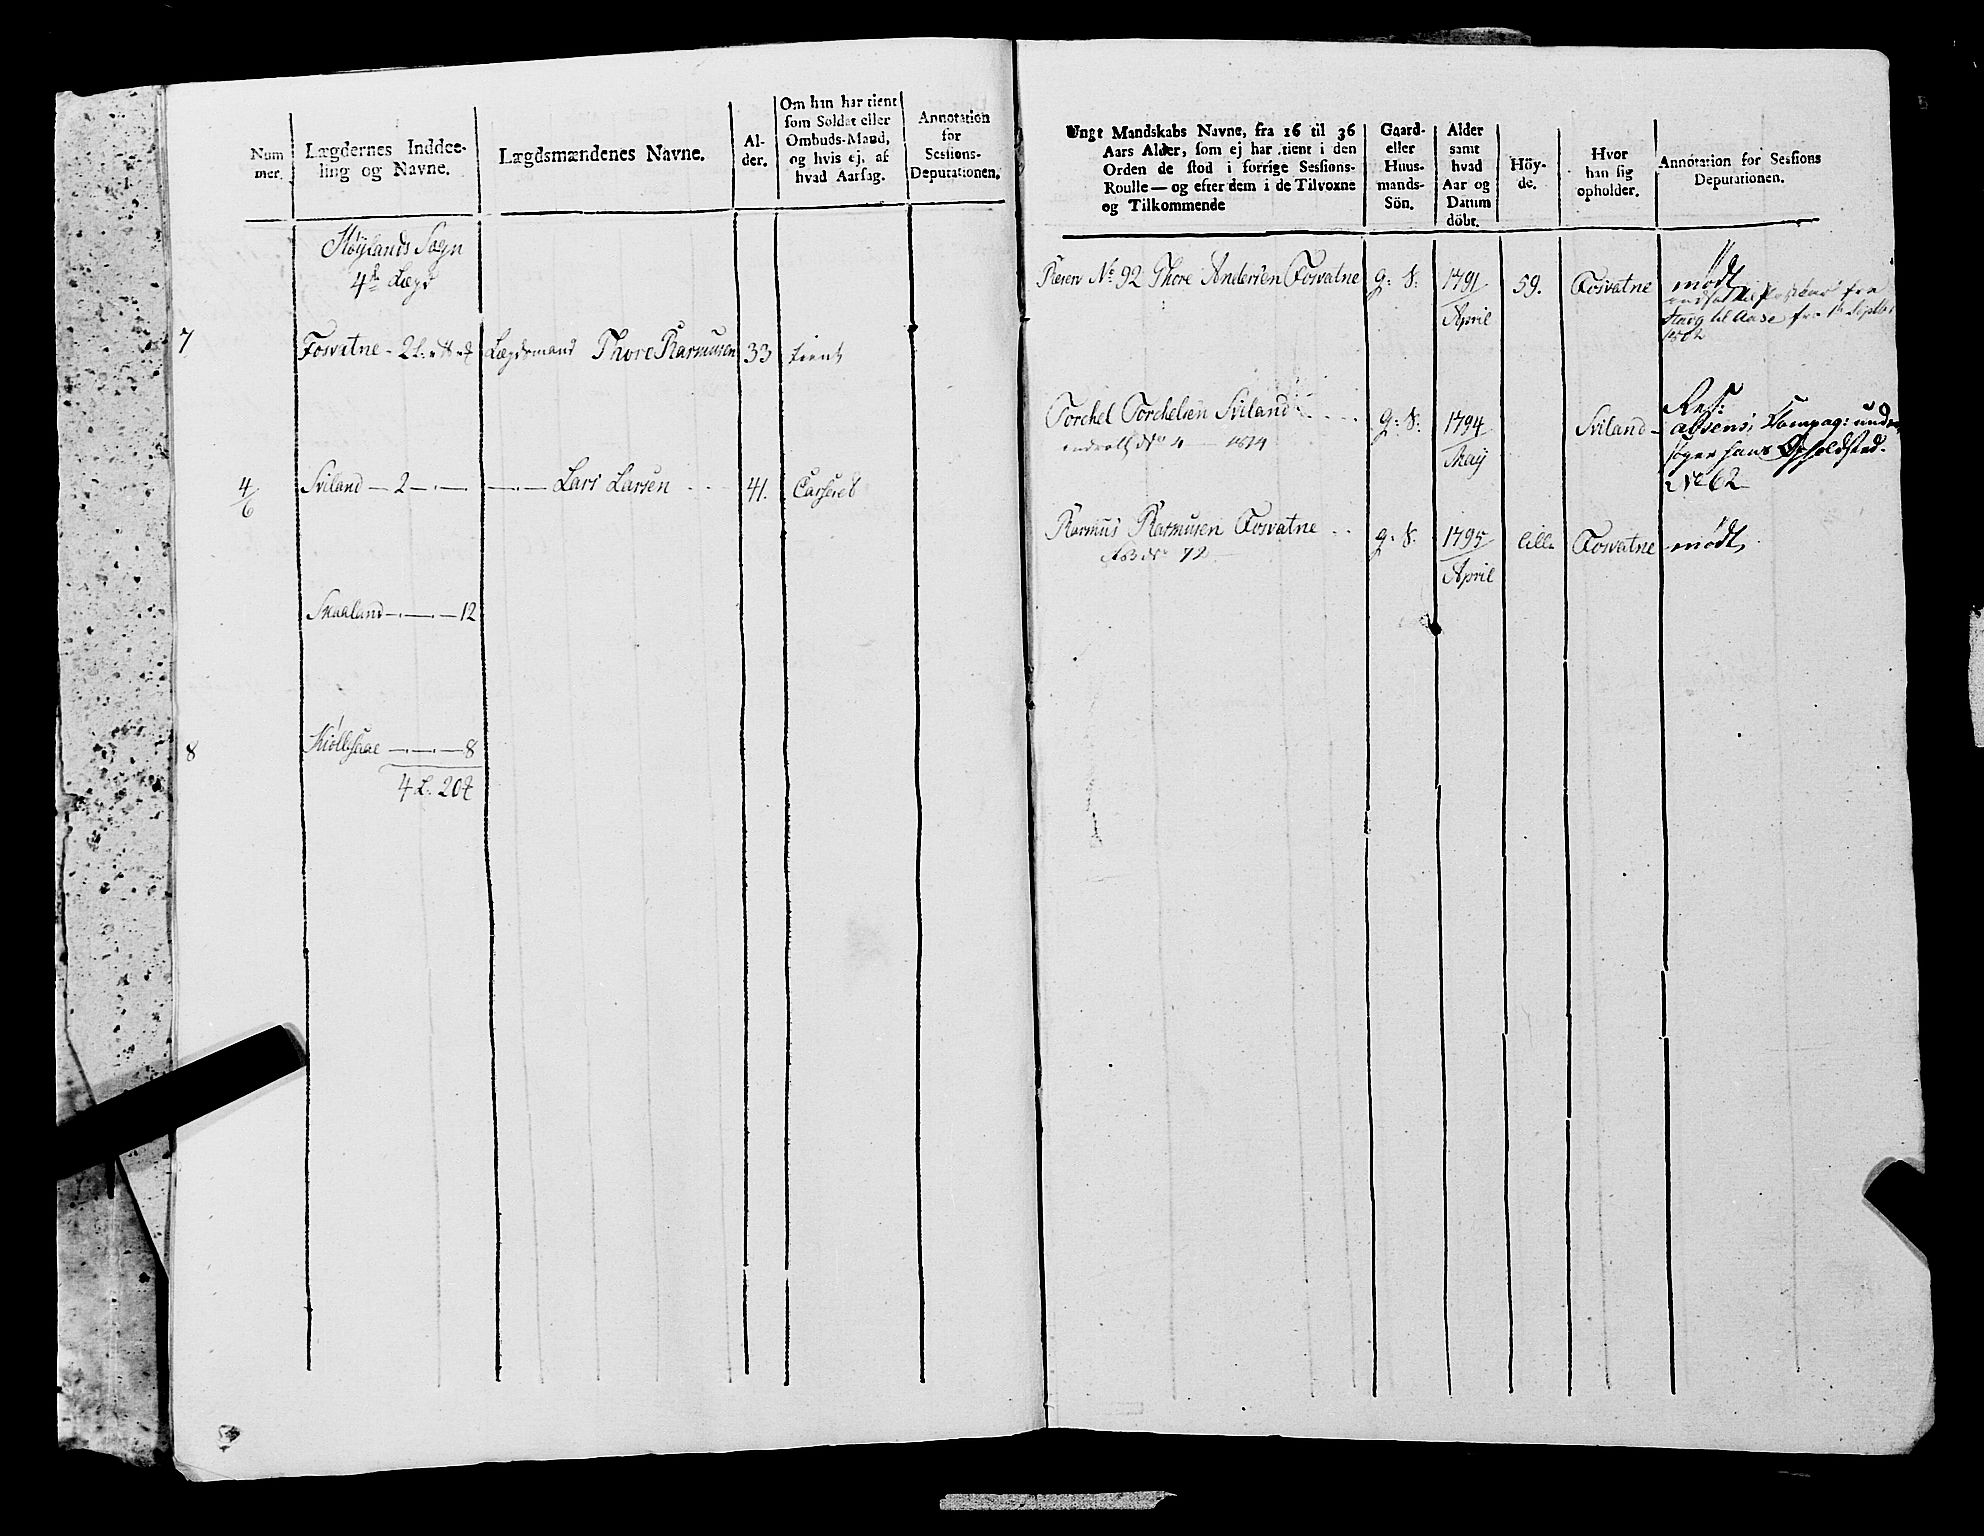 Num
mer.
Lægdernes Inddee-
ling og Navne.
Lægdsmændenes Navne.
Al-
der.
Om han har tient
som Soldat eller
Ombuds-Mand,
og hvis ej, af
hvad Aarsag.
Annotation
for
Sessions-
Deputationen.
Höÿlands Sogn
4de Lægd
7
Fosvatne - 2
Lægdsmand Thore Rasmusen
33
tient
4/6
Sviland - 2 - . -
- . - Lars Larsen
41.
Casseret
Skaaland - . - . - 12
8
- . - . - 8
4 L. 20
Ungt Mandskabs Navne, fra 16 til 36
Aars Alder, som ej har tient i den
Orden de stod i forrige Sessions-
Roulle — og efter dem i de Tilvoxne
og Tilkommende
Gaard-
eller
Huus-
mands-
Sön.
Alder
samt
hvad
Aar og
Datum
döbt.
Höy-
de.
Hvor
han sig
opholder.
Annotation for Sessions
Deputationen.
No 92 Thore Andersen Fosvatne
g: S:
1791
April
59.
Fosvatne
mødt
til Aase fra
Torchel Torchelsen Sviland
1814
g: S:
1794
Maÿ
Sviland -
Res:
absens, Compag: under
søger hans Opholdsted.
No 62
Rasmus Rasmusen Fosvatne
72
g: S:
1795
April
lille
Fosvatne
mødt